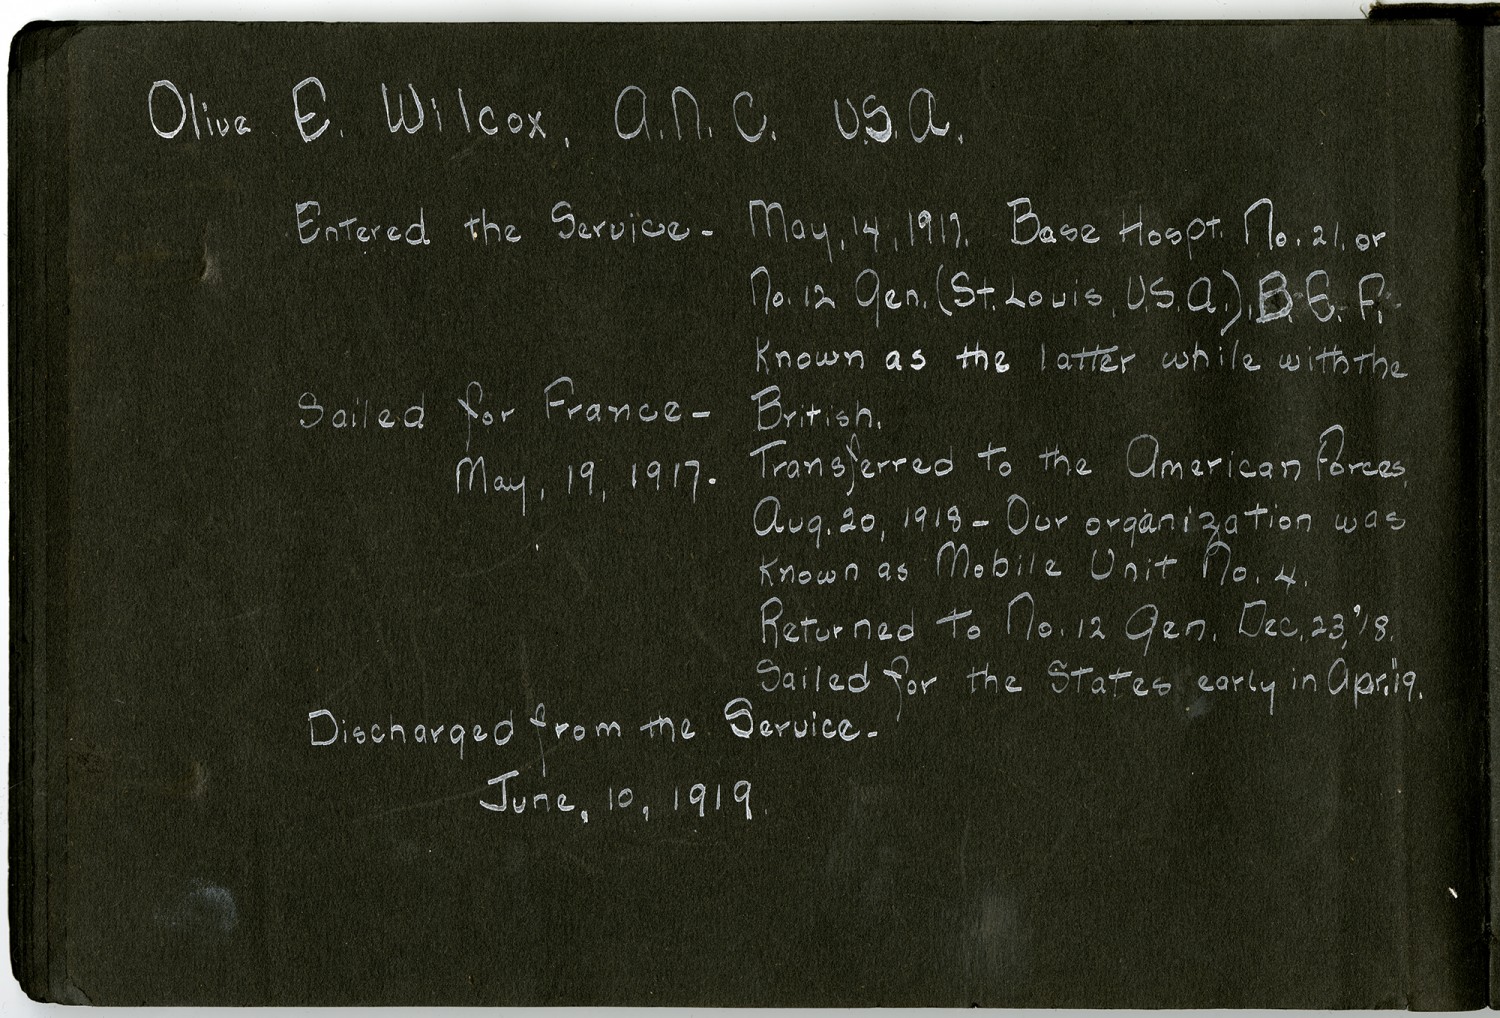 Olive E. Wilcox, A.N.C. U.S.A.
Entered the Service - May, 14, 1917. Base Hospt. No. 21. or
No. 12 Gen. (St. Louis, U.S.A.), B.E.F.
Known as the latter while with the
Sailed for France - British.
May, 19, 1917. Transferred to the American Forces,
Aug. 20, 1918 - Our organization was
known as Mobile Unit No. 4.
Returned to No. 12 Gen. Dec, 23, '18.
Sailed for the States early in Apr. '19.
Discharged from the Service -
June, 10, 1919.